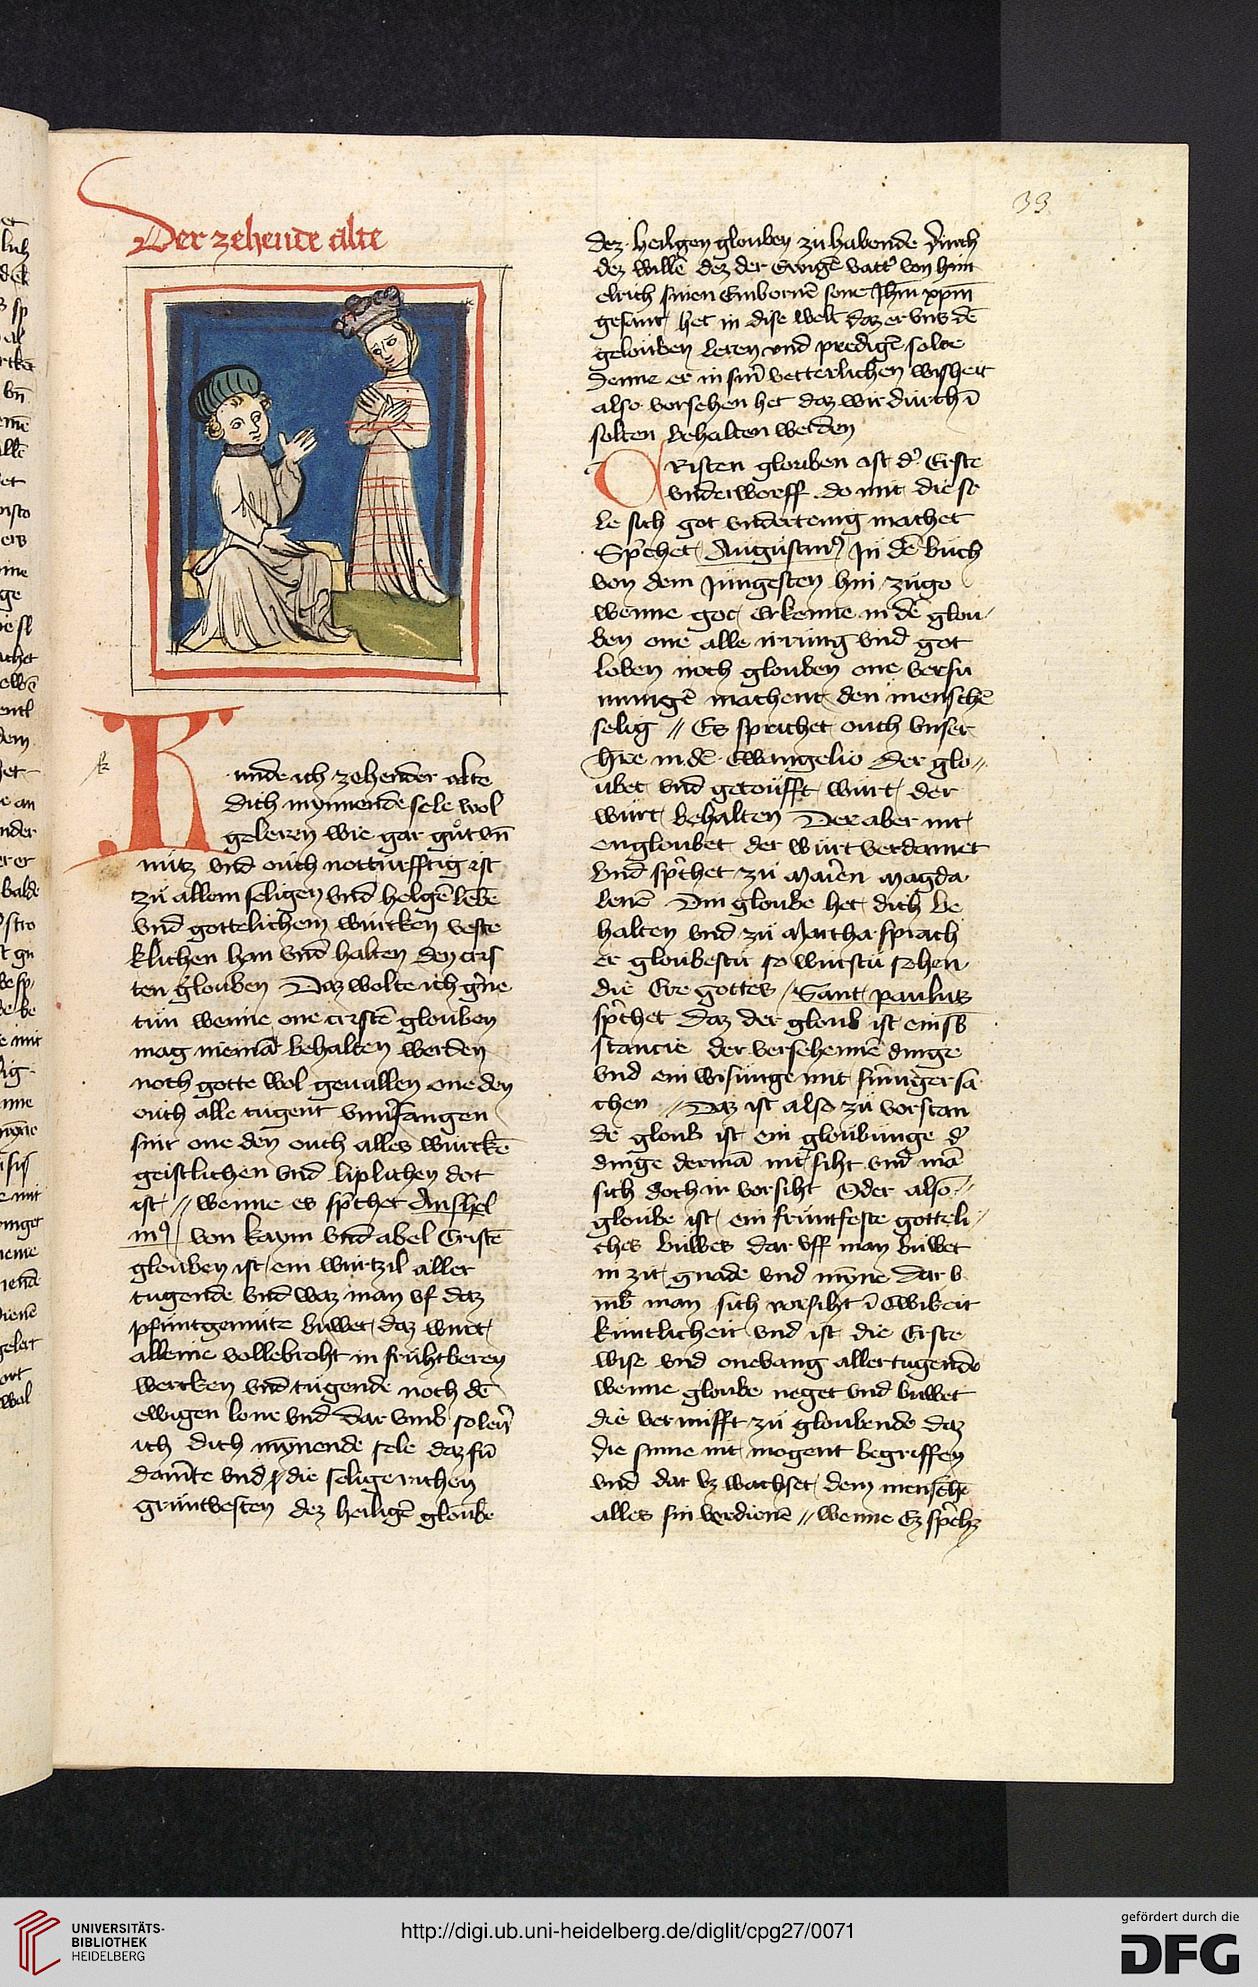 33
Der zehende alte
k
Kunde ich zehender alte
dich mynnende sele wol
geleren wie gar gůt vn̄
nútz vnd ouch notturfftig ist
zů allem seligen vnd helgē lebē
vnd gottelichem wúrcken veste
klichen han vnd halten den cris
ten glouben Daz wolte ich gˀne
tůn wenne one cristē glouben
mag niemā behalten werden
noch gotte wol geuallen one den
ouch alle tugent vmˀfangen
sint one den ouch alles wúrckē
geistlichen vnd liplichen dot
ist // wenne es spͥchet Anshel
mꝰ von kaym vnd abel Cristē
glouben ist ein wurtzil aller
tugende vnd waz man vf daz
pfuntgemúte buwet daz wurt
alleine vollebroht in fruhtberen
wercken vnd tugende noch dē
ewigen lone vnd dar vmb so lerˀ
ich dich mȳnende sele daz fū
damēte vnd die selige richen
gruntvesten dez heiligē gloube
dez heilgen glouben zů habende durch
dez willē dez der Ewigē vattˀ von him
elrich sinen Einbornē sone Jhm̄ xpm̄
gesant het in dise welt daz er vns dē
gelouben leren vnd predigē solte
Denne er in sinˀ vetterlichen wisheit
also vorsehen het daz wir durch ī
solten behalten werden
Cristen glouben ist dˀ Erste
vnderworff do mit die se
le sich got vndertenig machet
Spͥchet Augustinꝰ Jn dē bůch
von dem Jungesten hin zůge
wenne got Erkenne in dē glou
ben one alle irrung vnd got
loben noch glouben one versu
mungē machent den menschē
selig // Es sprichet ouch vnser
hˀre in dē Ewangelio Der glo//
ubet vnd getoufft wurt der
wurt behalten Der aber nit
engloubet der wurt verdamet
vnd spͥchet zů Marien Magda
lenē Din gloube het dich be
halten vnd zů Martha sprach
er gloubestu so wurstu sehen
die Ere gottes / Sant paulus
spͥchet daz der gloub ist ein sb̄
stancie der versehennē dinge
vnd ein wisunge mit sinnigerˀ sa
chen // Daz ist also zů vorstan
de gloub ist ein gloubunge dˀ
dinge der mā nit siht vnd mā
sich doch ir vorsiht Oder also //
gloube ist ein fruntfeste gotteli
ches buwes dar vff man buwet
in zit gnade vnd mȳne dar v
mb man sich vorsiht ī Ewikeit
kuntlicheit vnd ist die Erste
wise vnd onevang aller tugende
wenne gloube neget vnd buwet
die vernufft zů gloubende daz
die sinne nit mogent begriffen
vnd dar vz wachset dem mensche
alles sin verdienē // wenne Ez spͥchz
UNIVERSITÄTS-
BIBLIOTHEK
HEIDELBERG
http://digi.ub.uni-heidelberg.de/diglit/cpg27/0071
gefördert durch die
DFG